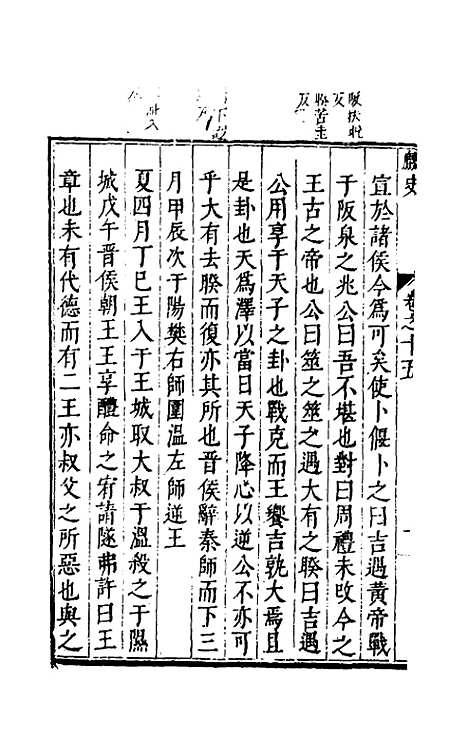 宜於諸侯今爲可矣使卜偃卜之曰吉遇黃帝戰
于阪泉之兆公曰吾不堪也對曰周禮未改今之
王古之帝也公曰筮之筮之遇大有之睽曰吉遇
公用享于天子之卦也戰克而王饗吉孰大焉且
是卦也天爲澤以當日天子降心以逆公不亦可
乎大有去睽而復亦其所也晉侯辭秦師而下三
月甲辰次于陽樊右師圍溫左師逆王
夏四月丁巳王入于王城取大叔于溫殺之于隰
城戊午晉侯朝王王享醴命之宥請隧弗許曰王
章也未有代德而有二王亦叔父之所惡也與之
史
卷之十五
睽苦圭
反